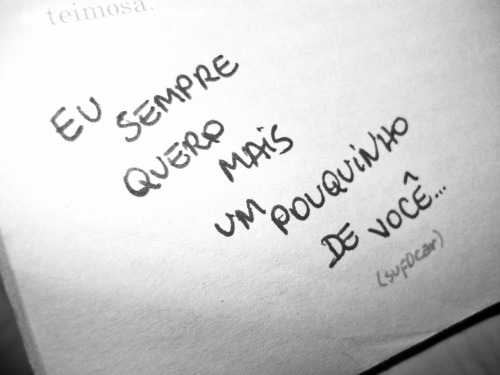 teimosa.
EU SEMPRE
QUERO MAIS
UM POUQUINHO
DE VOCÊ...
(sufocar)